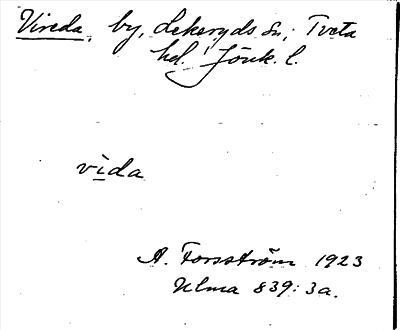 Vireda, by, Lekeryds sn; Tveta
hd. Jönk. l.
vìda
A. Forsström 1923
Ulma 839: 3a.